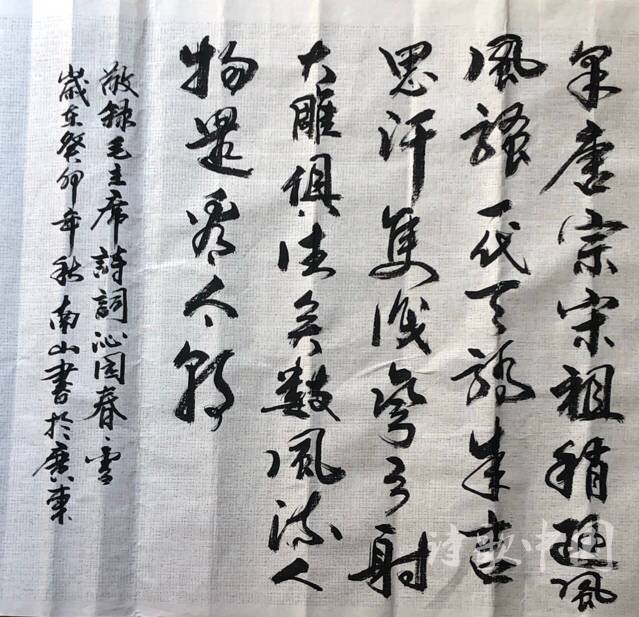 采唐宗宋祖稍遜風
風騷一代天驕成吉
思汗隻識彎弓射
大雕俱往矣數風流人
物還看今朝
敬録毛主席詩詞沁园春雪
歲在癸卯年秋南山書於廣東
诗歌中国